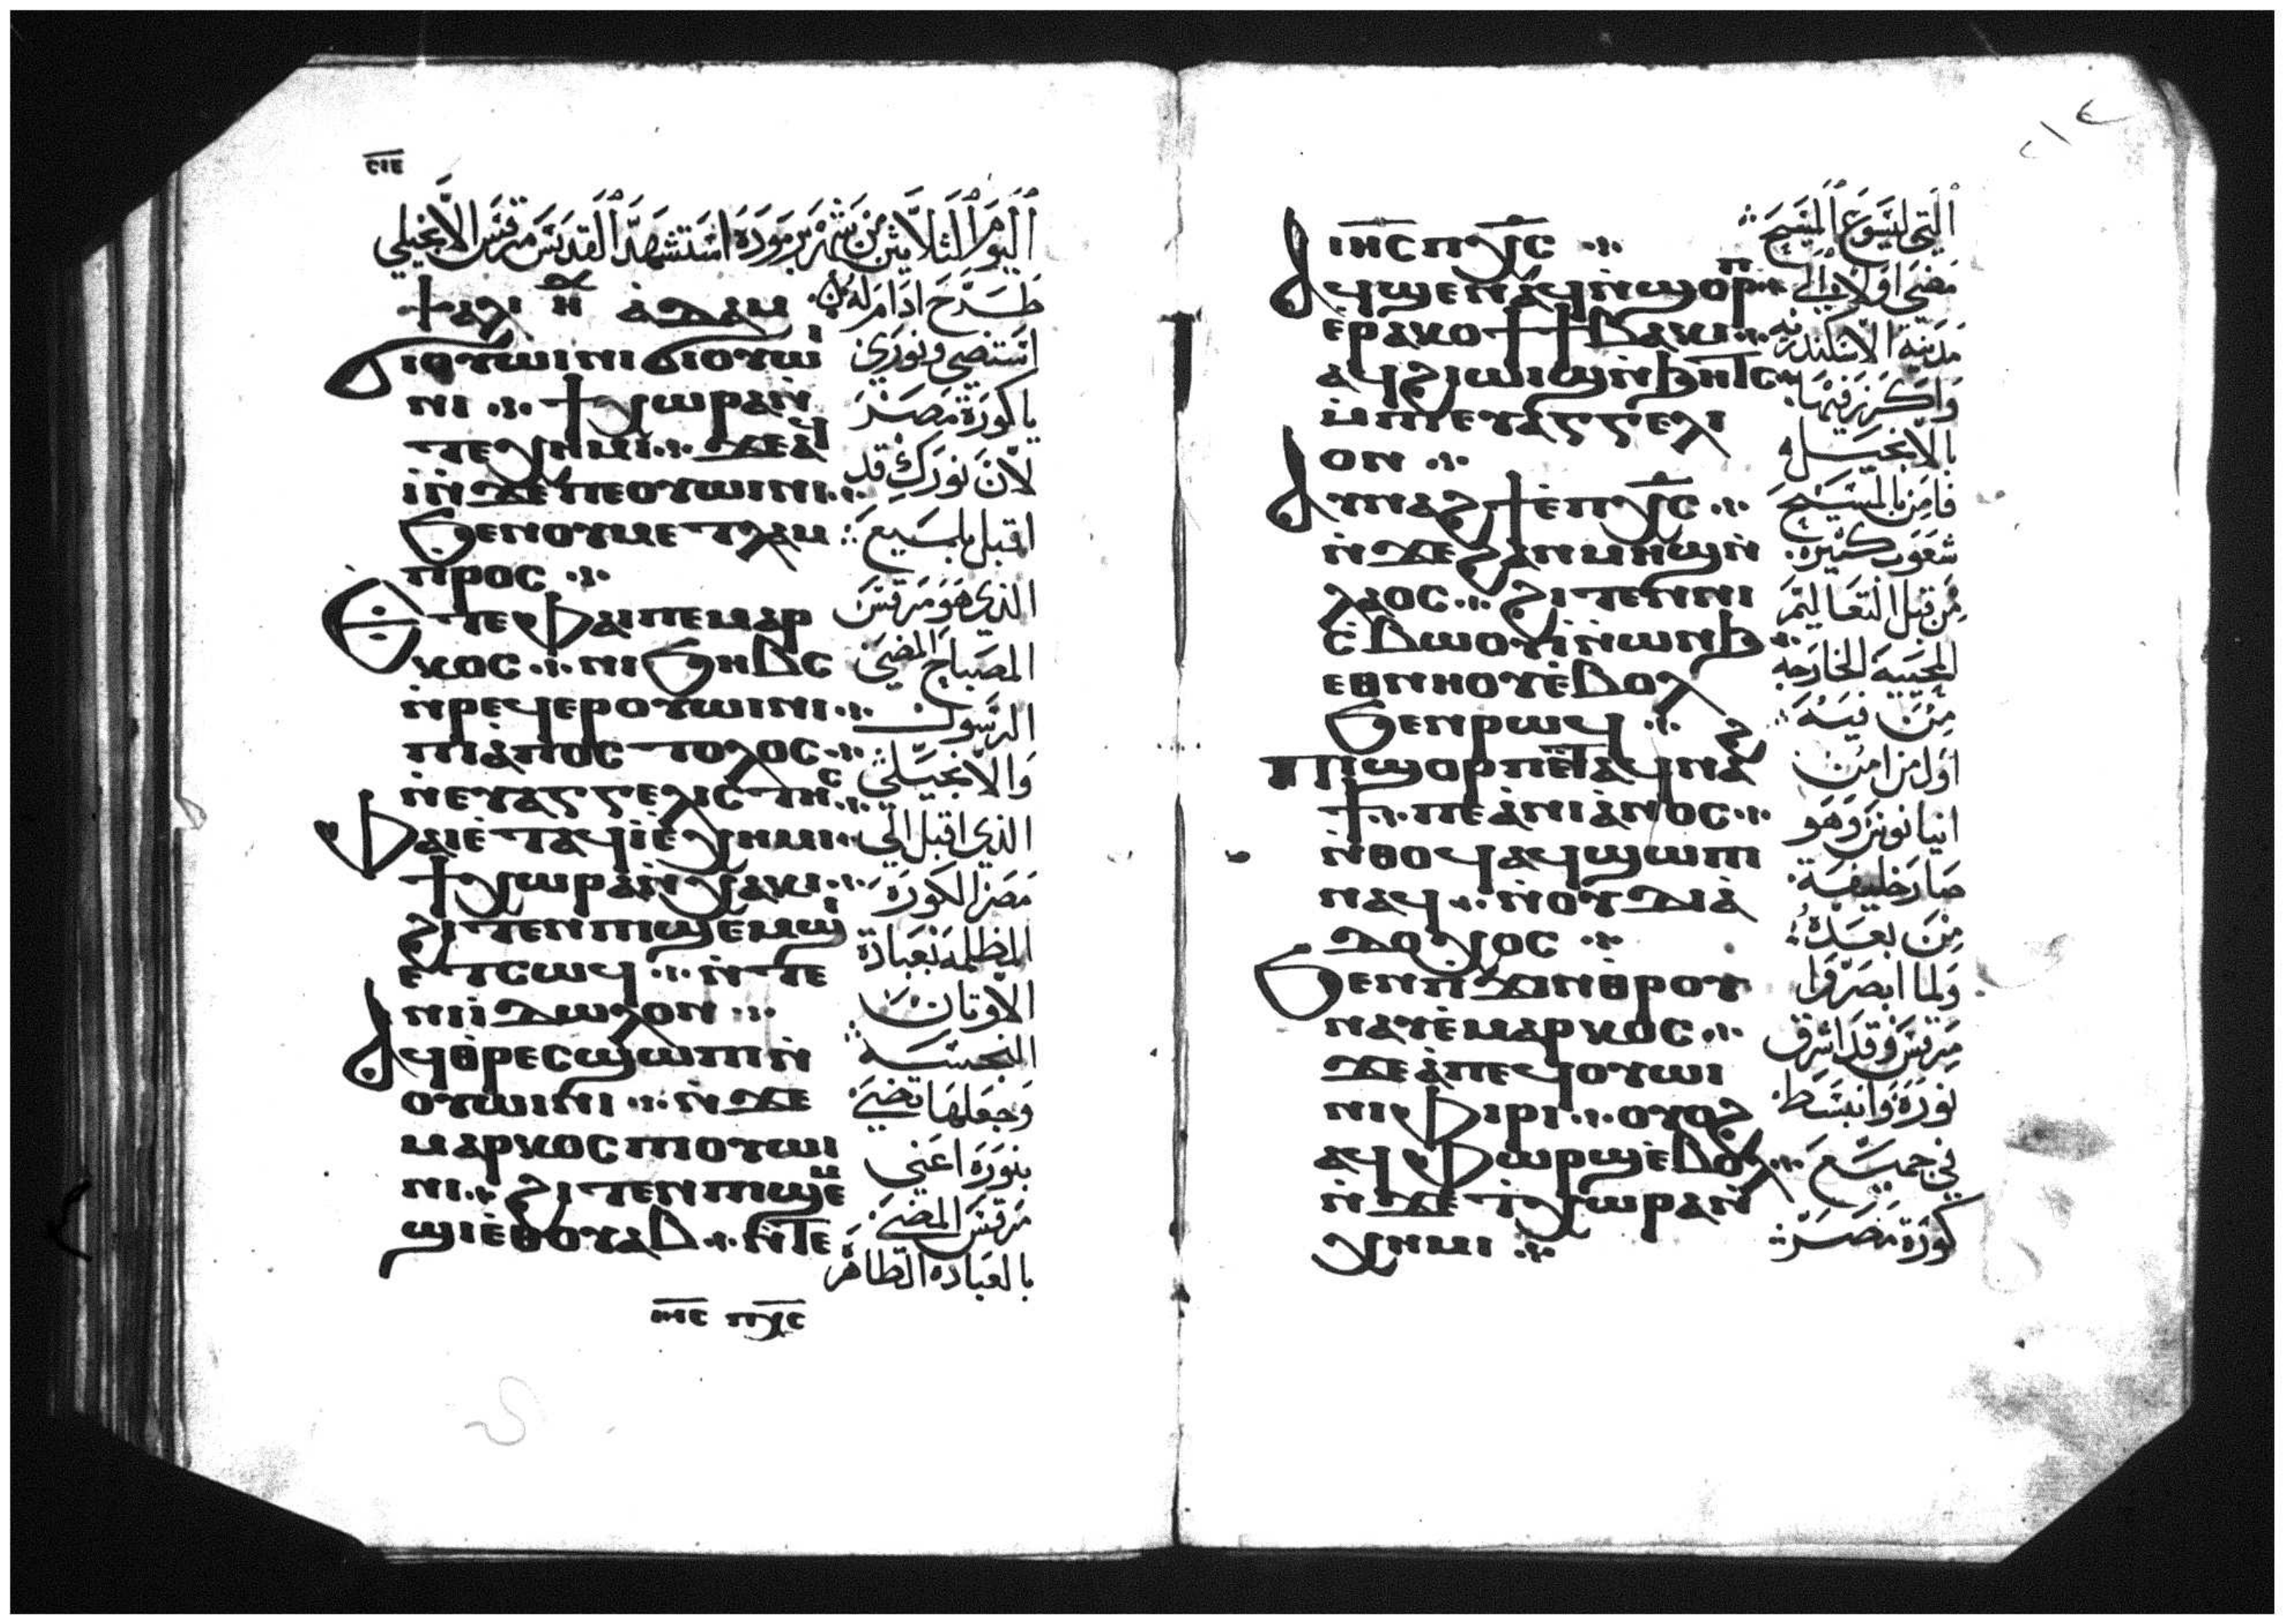 ⲥⲓⲉ
اليوم الثلاثين من شهر برموده استشهد القديس مرقس الانجيلي
ⲯⲁⲗⲓ ⲏ̄ ⲁ̀ⲇⲁⲙ
طرح ادام له
ϭⲓⲟⲩⲱⲓⲛⲓ ϭⲓⲟⲩⲱⲓ̀
ⲛⲓ ϯⲭⲱⲣⲁ ⲛ̀
ⲧⲉⲭⲏⲙⲓ ϫⲉ ⲁϥ
ⲓ̀ ⲛ̀ϫⲉ ⲡⲉⲟⲩⲱⲓⲛⲓ
ϧⲉⲛ ⲟⲩⲙⲉⲧⲗⲁⲙ
ⲡⲣⲟⲥ
ⲉⲧⲉ ⲫⲁⲓ ⲡⲉ ⲙⲁⲣ
ⲕⲟⲥ ⲡⲓϧⲏⲃⲥ
ⲛ̀ⲣⲉϥⲉⲣⲟⲩⲱⲓⲛⲓ
ⲡⲓⲁ̀ⲡⲟⲥⲧⲟⲗⲟⲥ
ⲛⲉⲩⲁⲅⲅⲉⲗⲓⲥⲧⲏⲥ
ⲫⲁⲓ ⲉ̀ⲧⲁϥⲓ̀ ⲉ̀ⲭⲏⲙⲓ
ϯⲭⲱⲣⲁ ⲛ̀ⲭⲁⲕⲓ
ϩⲓⲧⲉⲛ ⲡⲓϣⲉⲙϣⲓ
ⲉⲧⲥⲱϥ ⲛ̀ⲧⲉ
ⲛⲓⲓ̀ⲇⲱⲗⲟⲛ
ⲁϥⲑⲣⲉⲥϣⲱⲡⲓ ⲛ̀
ⲟⲩⲱⲓⲛⲓ ⲛ̀ϫⲉ
ⲙⲁⲣⲕⲟⲥ ⲡⲓⲟⲩⲱⲓ
ⲛⲓ ϩⲓⲧⲉⲛ ⲡⲓϣⲉⲙ
ϣⲓ ⲉ̀ⲑⲟⲩⲁⲃ ⲛ̀ⲧⲉ
ⲓⲏⲥ ⲡⲭⲥ
استضي ونوري
يا كورة مصر
لان نورك قد
اقبل بلميع
الذي هو مرقس
المصباح المضي
الرسول
والانجيلي
الذي اقبل الي
مصر الكورة
المظلمه بعبادة
الاوتان
النجسه
وجعلها تضي
بنوره اعني
مرقس المضي
بالعباده الطاهره
٢١٤
ⲓⲏ̄ⲥ ⲡⲭ̄ⲥ
ⲁϥϣⲉⲛⲁϥ ⲛ̀ϣⲟⲣⲡ
ⲉ̀ⲣⲁⲕⲟϯ ϯⲃⲁⲕⲓ
ⲁϥϩⲓⲱⲓϣ ⲛ̀ϧⲏⲧⲥ
ⲙ̀ⲡⲉⲩⲁⲅⲅⲉⲗⲓ
ⲟⲛ
ⲁⲩⲛⲁϩϯ ⲉ̀ⲡⲭ̄ⲥ
ⲛ̀ϫⲉ ϩⲁⲛⲙⲏϣ ⲛ̀
ⲗⲁⲟⲥ ϩⲓⲧⲉⲛ ⲛⲓ
ⲥ̀ⲃⲱⲟⲩⲓ̀ ⲛ̀ⲱⲛϧ
ⲉⲑⲛⲏⲟⲩ ⲉ̀ⲃⲟⲗ
ϧⲉⲛ ⲣⲱϥ
ⲡⲓϣⲟⲣⲡ ⲉ̀ⲧⲁϥⲛⲁϩ
ϯ ⲡⲉ ⲁ̀ⲛⲓⲁ̀ⲛⲟⲥ
ⲛ̀ⲑⲟϥ ⲁϥϣⲱⲡⲓ
ⲛⲁϥ ⲛ̀ⲟⲩⲇⲓⲁ̀
ⲇⲟⲭⲟⲥ
ϧⲉⲛ ⲡϫⲓⲛⲑⲣⲟⲩ
ⲛⲁⲩ ⲉ̀ⲙⲁⲣⲕⲟⲥ
ϫⲉ ⲁ̀ⲡⲉϥⲟⲩⲱⲓ
ⲛⲓ ⲫⲓⲣⲓ ⲟⲩⲟϩ
ⲁϥⲫⲱⲣϣ ⲉ̀ⲃⲟⲗ
ⲛ̀ϫⲉ ϯⲭⲱⲣⲁ ⲛ̀
ⲭⲏⲙⲓ
التي ليسوع المسيح
مضي اولا الي
مدينة الاسكندريه
واكرز فيها
بالانجيل
فامن بالمسيح
شعوب كثيره
من قبل التعاليم
المحييه الخارجه
من فيه
اول من امن
انيانوس وهو
صار خليفة
من بعده
ولما ابصروا
مرقس وقد اشرق
نوره وانبسط
في جميع
كورة مصر